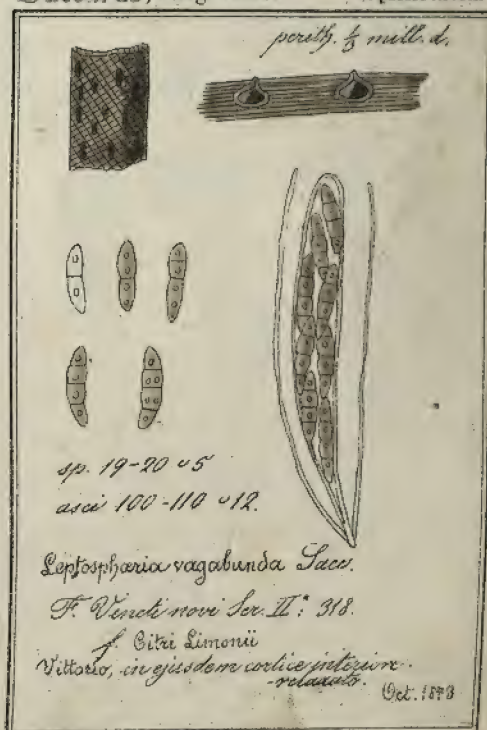 perith. ⅓ mill. d.
sp. 19-20 ∪ 5
asci 100-110 ∪ 12.
Leptosphæria vagabunda Sacc.
F. Veneti novi Ser. II: 318.
f. Citri Limonii
Vittorio, in ejusdem cortice interiore
relaxato.
Oct. 1873